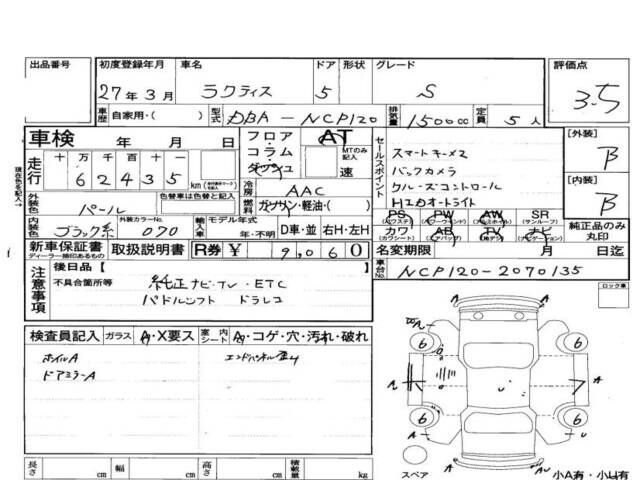 出品番号 初度登録年月 車名 ドア 形状 グレード 評価点
27年3月 ラクティス 5 S 3.5
車歴 自家用・( ) 型式 DBA-NCP120 排気量 1500cc 定員 5人
車検 年 月 日
フロア・コラム・ダッシュ AT MTのみ記入 速
セールスポイント
スマートキー×2
バックカメラ
クルーズコントロール
オートライト
[外装] B
[内装] B
現在色を記入→
走行 十 万 千 百 十 一
6 2 4 3 5 km
冷房 AAC
燃料 ガソリン・軽油・( )
外装色 パール 色替車は色替と記入
内装色 ブラック系 外装カラーNo. 070
輸入車 モデル年式 年・不明 D車・並 右H・左H
PS (パワステ) PW (パワーウインド) AW (アルミホイル) SR (サンルーフ)
カワ (カワシート) AB (エアバッグ) TV (地デジ) ナビ (ナビゲーション)
純正品のみ丸印
新車保証書 ディーラー捺印あるもの 取扱説明書 R券 ¥ 9,060
名変期限 月 日迄
車台No. NCP120-2070135
注意事項
後日品【
不具合箇所等 純正ナビ・TV・ETC
パドルシフト ドラレコ
ロック車
検査員記入 ガラス A・X要ス 室内シート A・コゲ・穴・汚れ・破れ
ホイルA
ドアミラーA
エンドパネル歪4
A
6 6
A
6 6
A
U
スペア
A AU
長さ cm 幅 cm 高さ cm 積載量 kg
小A有・小U有